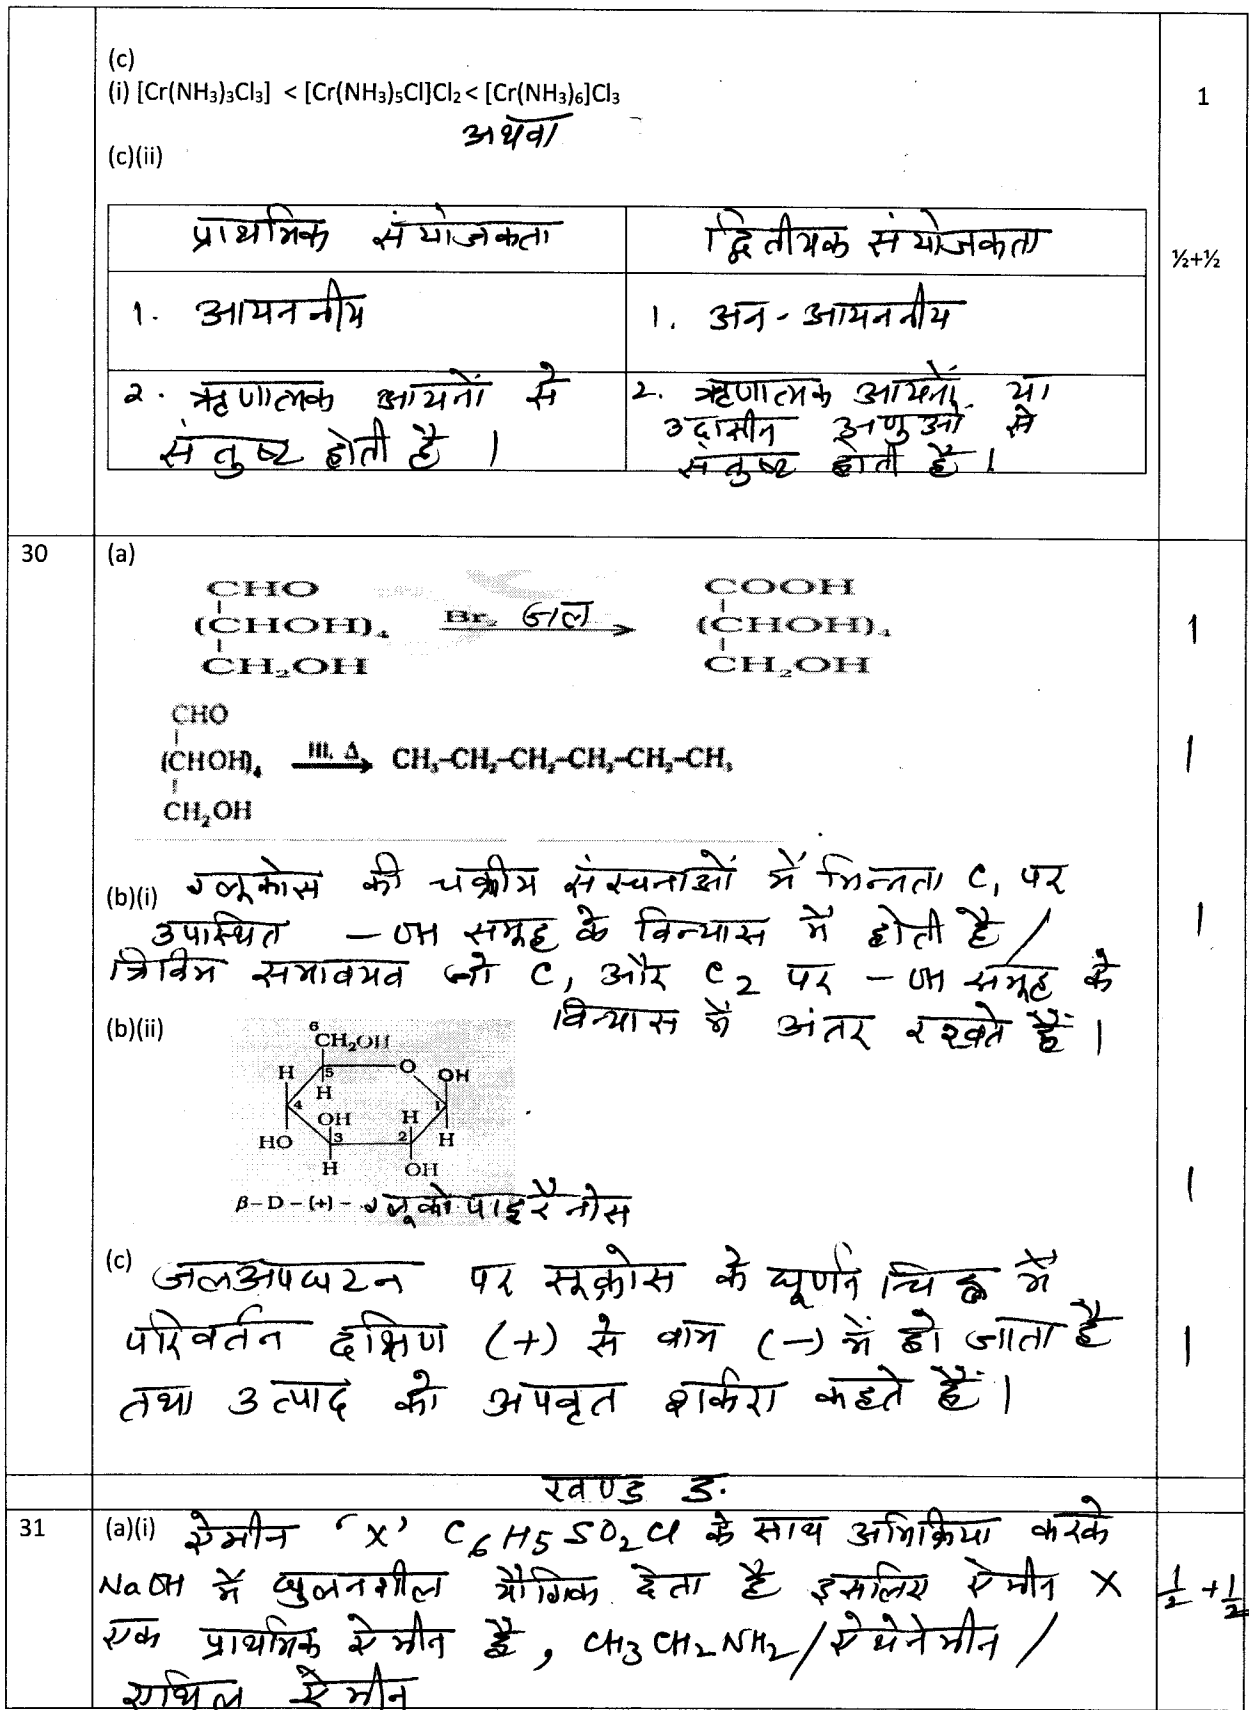 (c)
(i) [Cr(NH₃)₃Cl₃] < [Cr(NH₃)₅Cl]Cl₂ < [Cr(NH₃)₆]Cl₃
1
अथवा
(c)(ii)
प्राथमिक संयोजकता
द्वितीयक संयोजकता
½+½
1. आयननीय
1. अन-आयननीय
2. ऋणात्मक आयनों से
संतुष्ट होती है ।
2. ऋणात्मक आयनों या
उदासीन अणुओं से
संतुष्ट होती है ।
30
(a)
CHO
(CHOH)₄
CH₂OH
Br₂ जल
COOH
(CHOH)₄
CH₂OH
1
CHO
(CHOH)₄
CH₂OH
HI, Δ
CH₃-CH₂-CH₂-CH₂-CH₂-CH₃
1
(b)(i) ग्लूकोस की चक्रीय संरचनाओं में भिन्नता C₁ पर
उपस्थित -OH समूह के विन्यास में होती है /
त्रिविम समावयव जो C₁ और C₂ पर -OH समूह के
विन्यास में अंतर रखते हैं ।
1
(b)(ii)
6
CH₂OH
H 5 O OH
H
4 OH H 1
HO 3 2 H
H OH
β-D-(+)- ग्लूकोपाइरैनोस
1
(c) जलअपघटन पर सूक्रोस के घूर्णन चिह्न में
परिवर्तन दक्षिण (+) से वाम (-) में हो जाता है
तथा उत्पाद को अपवृत शर्करा कहते हैं ।
1
खण्ड ङ
31
(a)(i) ऐमीन 'X' C₆H₅SO₂Cl के साथ अभिक्रिया करके
NaOH में घुलनशील यौगिक देता है इसलिए ऐमीन X
एक प्राथमिक ऐमीन है, CH₃CH₂NH₂/ऐथेनेमीन /
एथिल ऐमीन
½+½